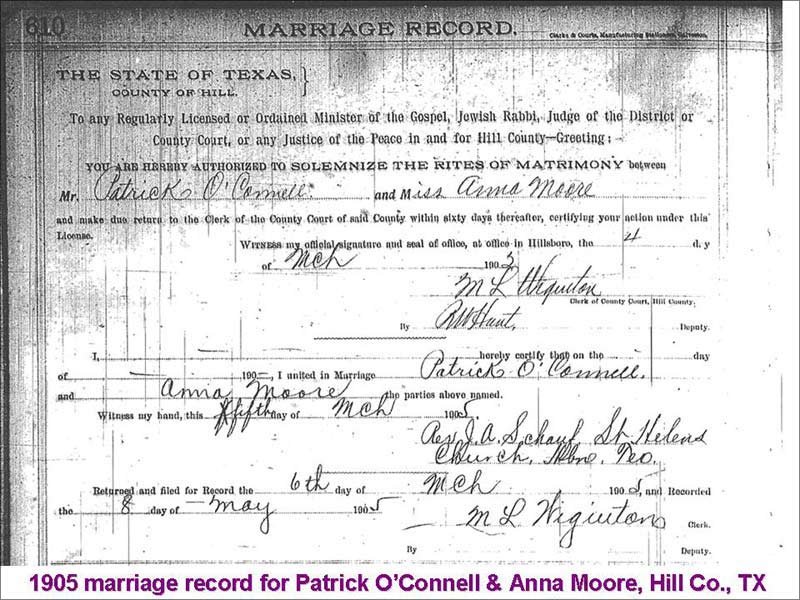 610 MARRIAGE RECORD. Clarke & Courts, Manufacturing Stationers, Galveston.
THE STATE OF TEXAS, }
COUNTY OF HILL.
To any Regularly Licensed or Ordained Minister of the Gospel, Jewish Rabbi, Judge of the District or
County Court, or any Justice of the Peace in and for Hill County—Greeting:
YOU ARE HEREBY AUTHORIZED TO SOLEMNIZE THE RITES OF MATRIMONY between
Mr. Patrick O'Connell. and Miss Anna Moore
and make due return to the Clerk of the County Court of said County within sixty days thereafter, certifying your action under this
License.
WITNESS my official signature and seal of office, at office in Hillsboro, the 4 day
of Mch 1905
M L Wiginton
Clerk of County Court, Hill County.
By R W Hant. Deputy.
I, hereby certify that on the day
of 190 , I united in Marriage Patrick O'Connell.
and Anna Moore the parties above named.
Witness my hand, this fifth day of Mch 1905.
Rev J. A. Schauf St Helens
Church,
Returned and filed for Record the 6th day of Mch 1905, and Recorded
the 8 day of May 1905
M L Wiginton Clerk.
By Deputy.
1905 marriage record for Patrick O'Connell & Anna Moore, Hill Co., TX